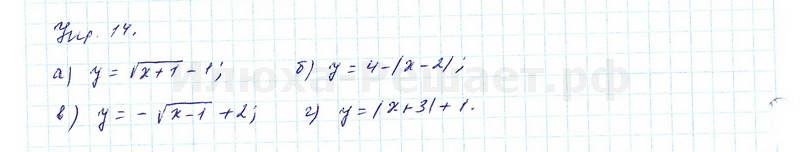 Упр. 14.
а) y = √x+1 - 1; б) y = 4 - |x - 2|;
в) y = - √x-1 + 2; г) y = |x + 3| + 1.
илюха-решает.рф